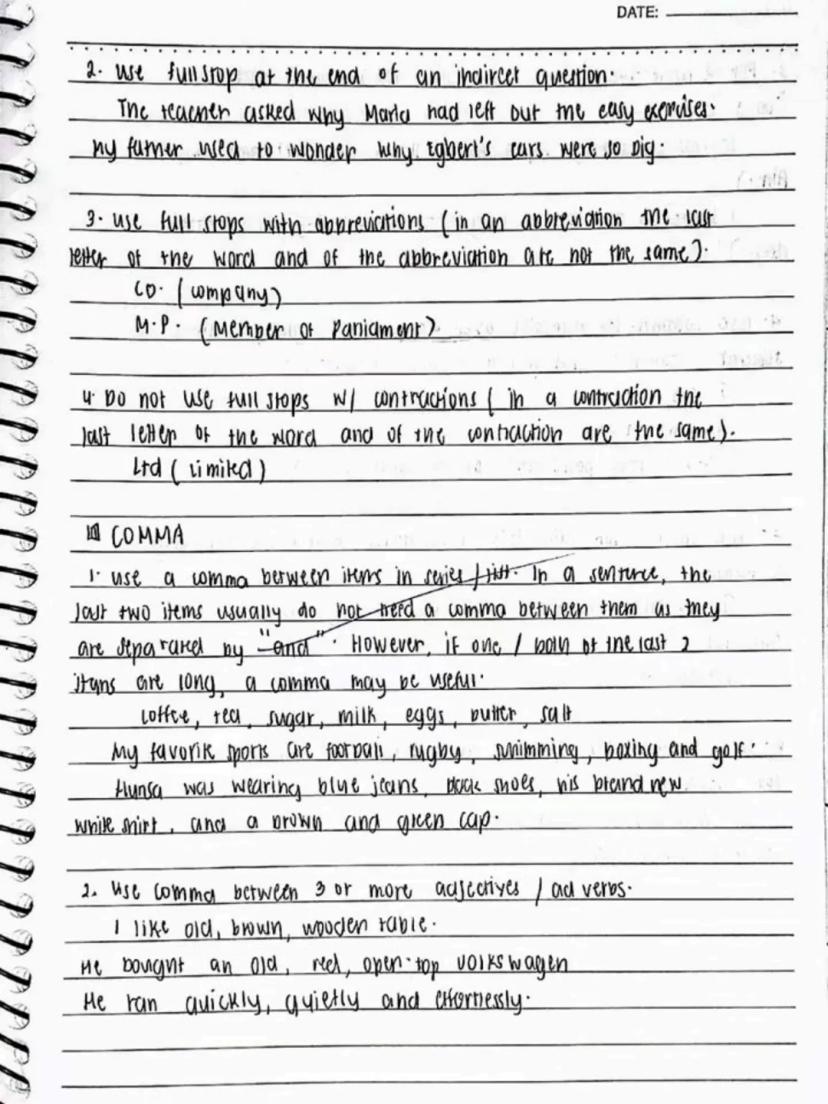 DATE:
2. Use full stop at the end of an indirect question.
The teacher asked why Maria had left out the easy exercises.
My father used to wonder why Egbert's ears were so big.
3. Use full stops with abbreviations (in an abbreviation the last
letter of the word and of the abbreviation are not the same).
Co. (company)
M.P. (Member of Parliament)
4. Do not use full stops w/ contractions (in a contraction the
last letter of the word and of the contraction are the same).
Ltd (Limited)
COMMA
1. Use a comma between items in series / list. In a sentence, the
last two items usually do not need a comma between them as they
are separated by "and". However, if one / both of the last 2
items are long, a comma may be useful.
Coffee, tea, sugar, milk, eggs, butter, salt
My favorite sports are football, rugby, swimming, boxing and golf.
was wearing blue jeans, black shoes, his brand new
white shirt, and a brown and green cap.
2. Use comma between 3 or more adjectives / adverbs.
I like old, brown, wooden table.
He bought an old, red, open-top Volkswagen
He ran quickly, quietly and effortlessly.